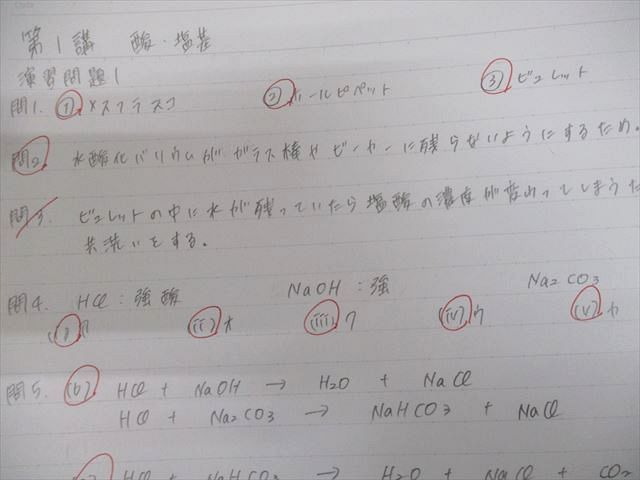 第1講 酸・塩基
演習問題1
問1. ① メスフラスコ ② ホールピペット ③ ビュレット
問2. 水酸化バリウムがガラス棒やビーカーに残らないようにするため。
問3. ビュレットの中に水が残っていたら塩酸の濃度が変わってしまうた
共洗いをする。
問4. HCl : 強酸 NaOH : 強 Na2CO3
(i) (ii) オ (iii) ワ (iv) ウ (v) カ
問5. (6) HCl + NaOH → H2O + NaCl
HCl + Na2CO3 → NaHCO3 + NaCl
HCl + NaHCO3 → H2O + NaCl + CO2